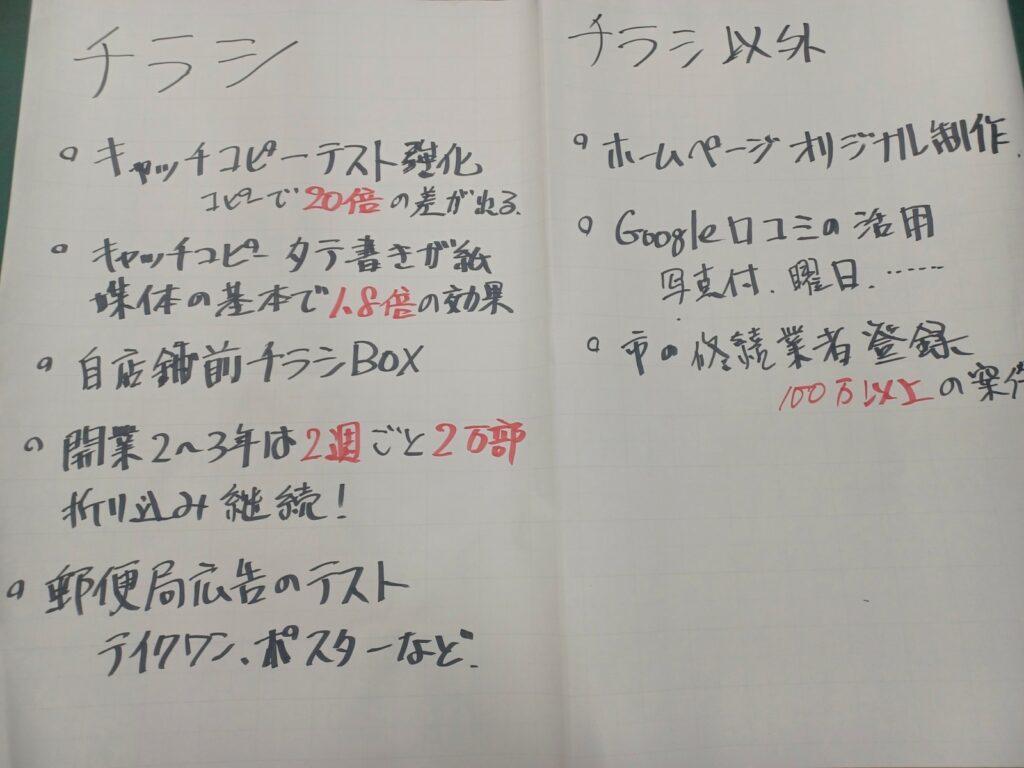 チラシ
キャッチコピーテスト強化
コピーで20倍の差が出る.
キャッチコピー タテ書きが紙
媒体の基本で1.8倍の効果
自店舗前チラシBOX
開業2〜3年は2週ごと2万部
折り込み継続!
郵便局広告のテスト
テイクワン、ポスターなど.
チラシ以外
ホームページオリジナル制作.
Google口コミの活用
写真付.曜日.……
市の修繕業者登録
100万以上の案件